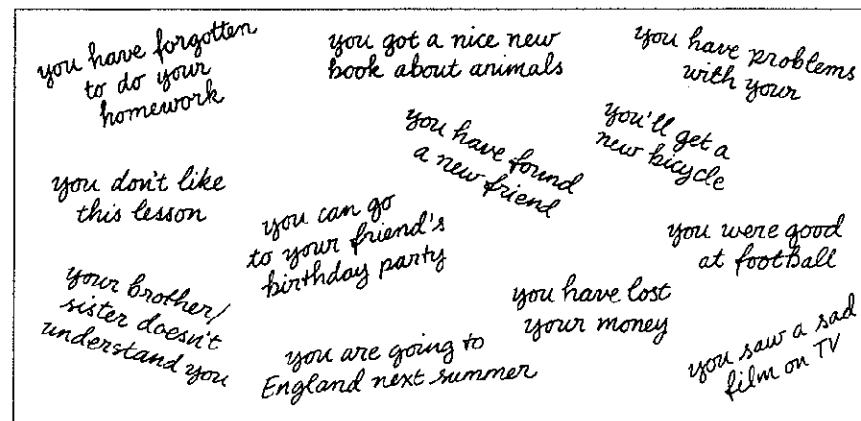 you have forgotten
to do your
homework
you got a nice new
book about animals
you have problems
with your
you have found
a new friend
you'll get a
new bicycle
you don't like
this lesson
you can go
to your friend's
birthday party
you were good
at football
your brother/
sister doesn't
understand you
you have lost
your money
you are going to
England next summer
you saw a sad
film on TV